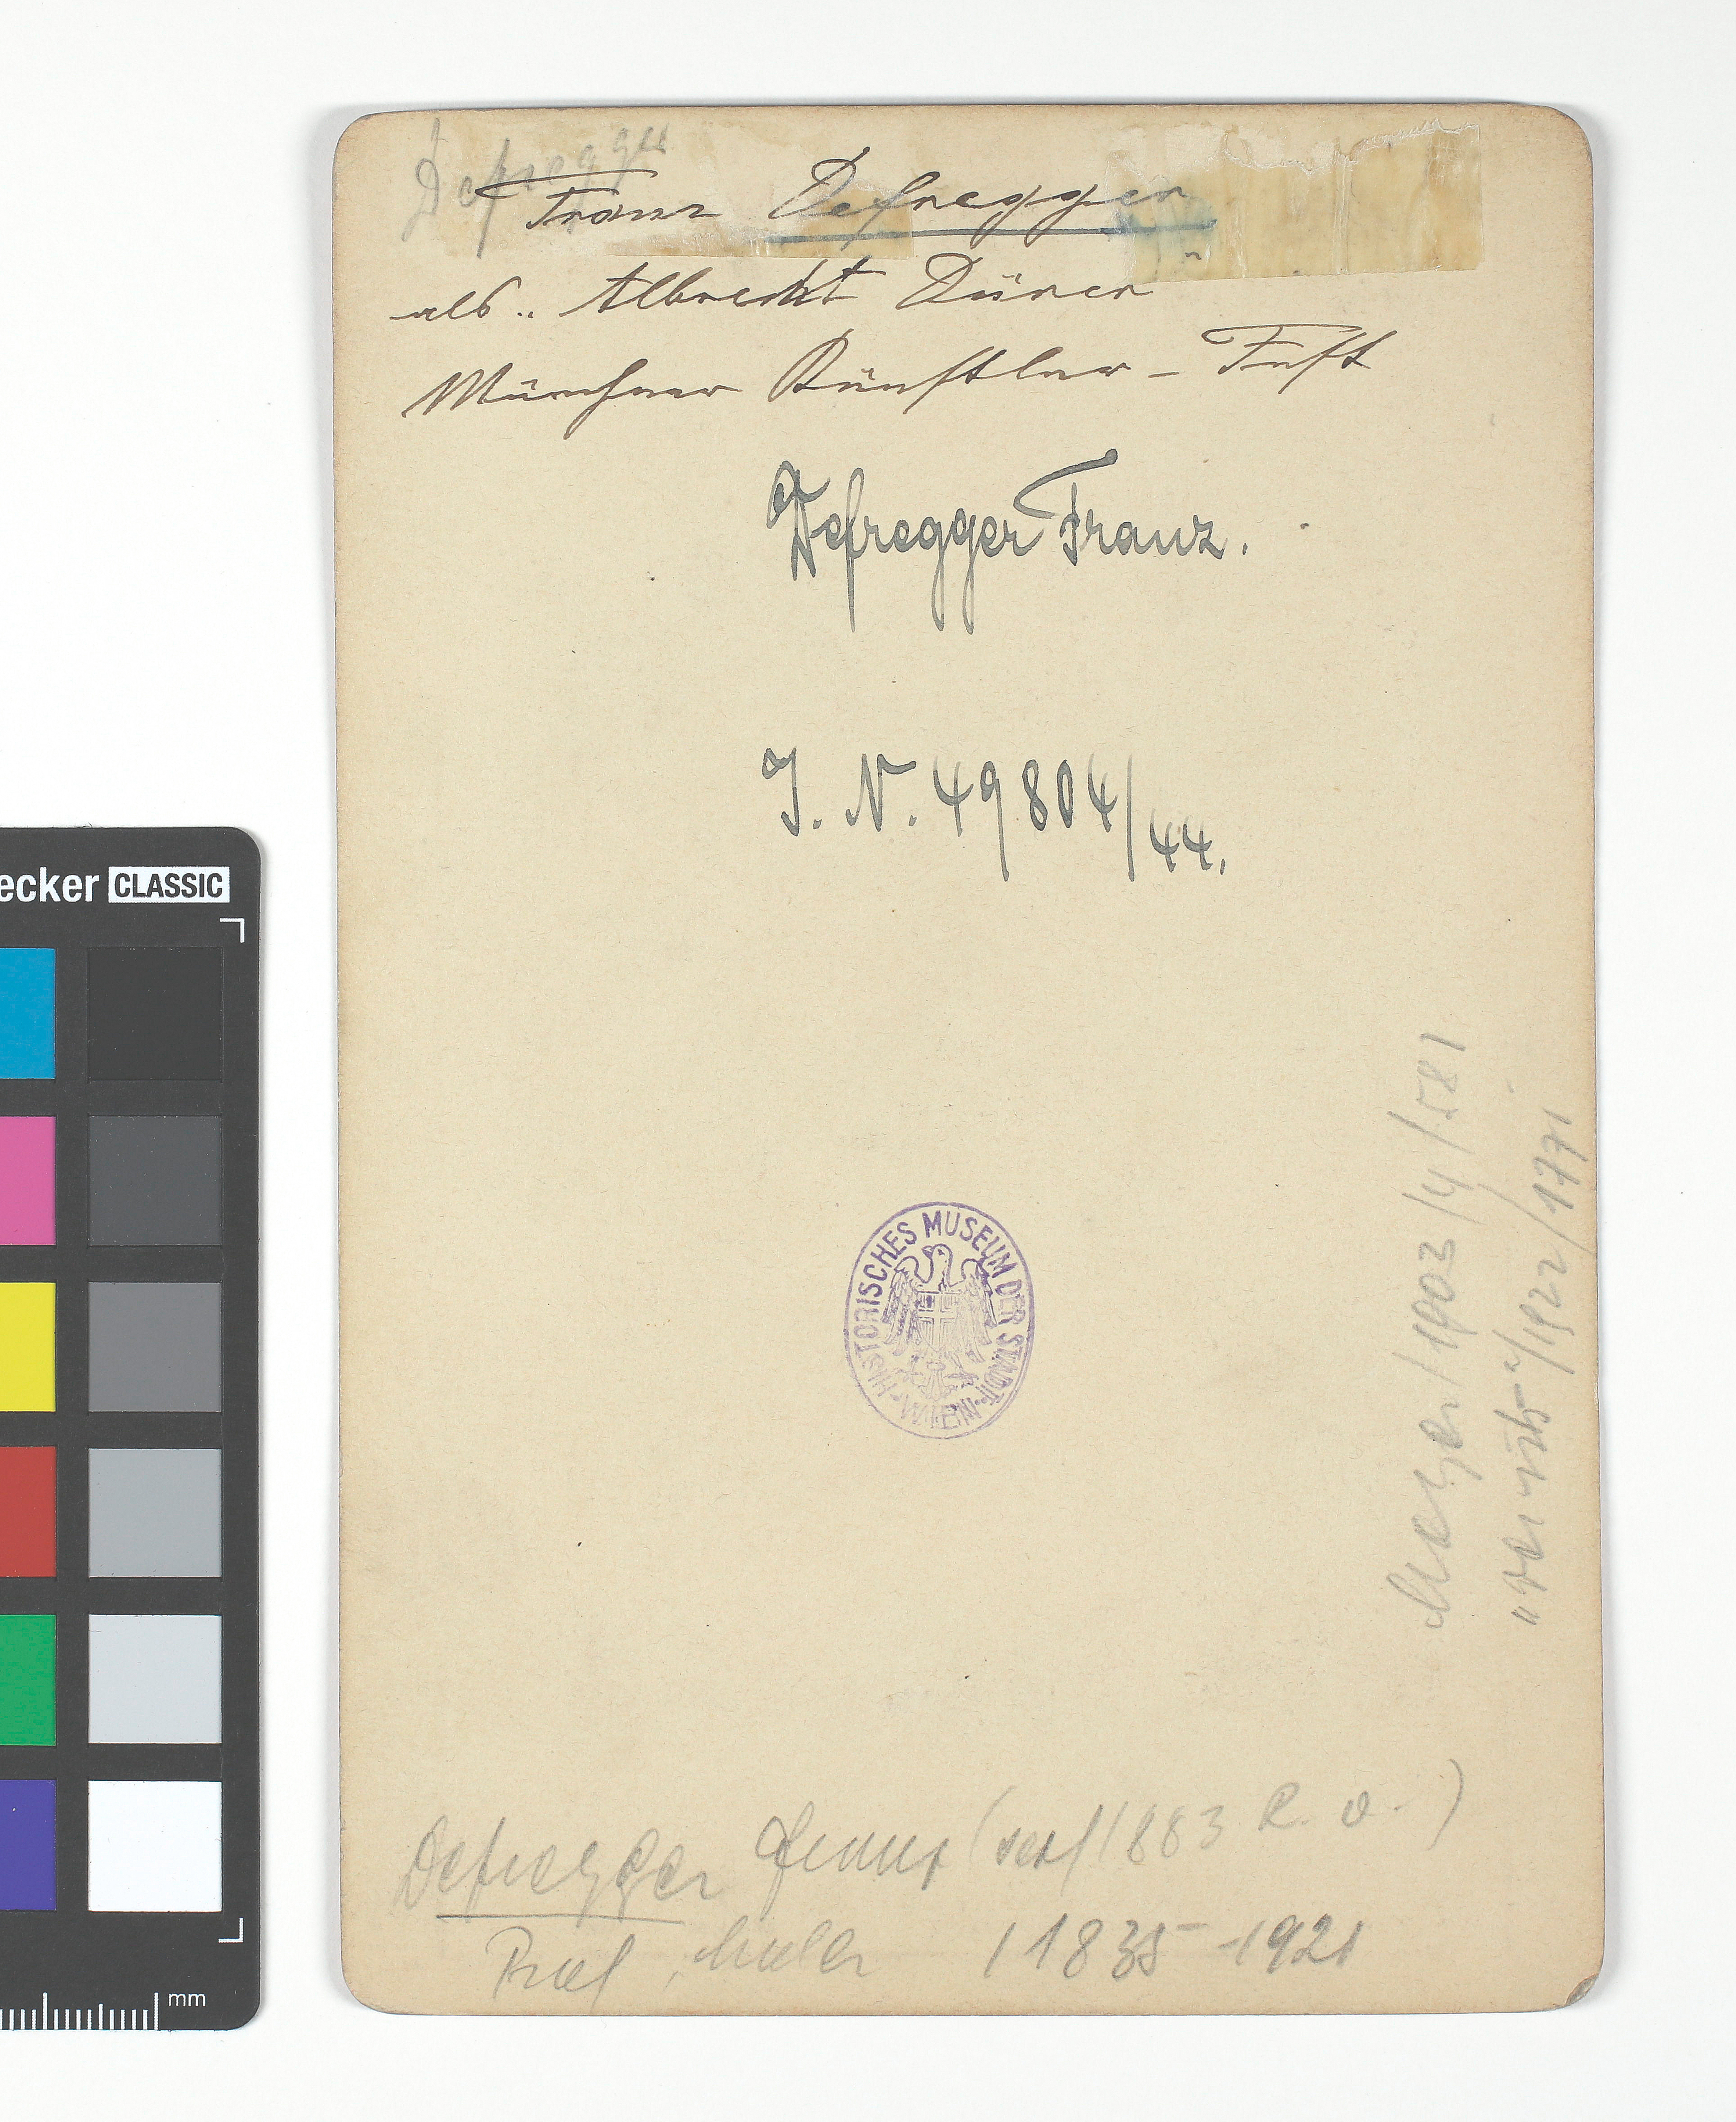 Defregger
Franz Defregger
als „ Albrecht Dürer "
Münchner Künstler - Fest
Defregger Franz.
I. N. 49804/44.
HISTORISCHES MUSEUM DER STADT
WIEN
/1903/4/581
/1922/1771
Defregger Franz (seit 1883 R. v. )
Prof, Maler / 1835-1921
ecker CLASSIC
mm